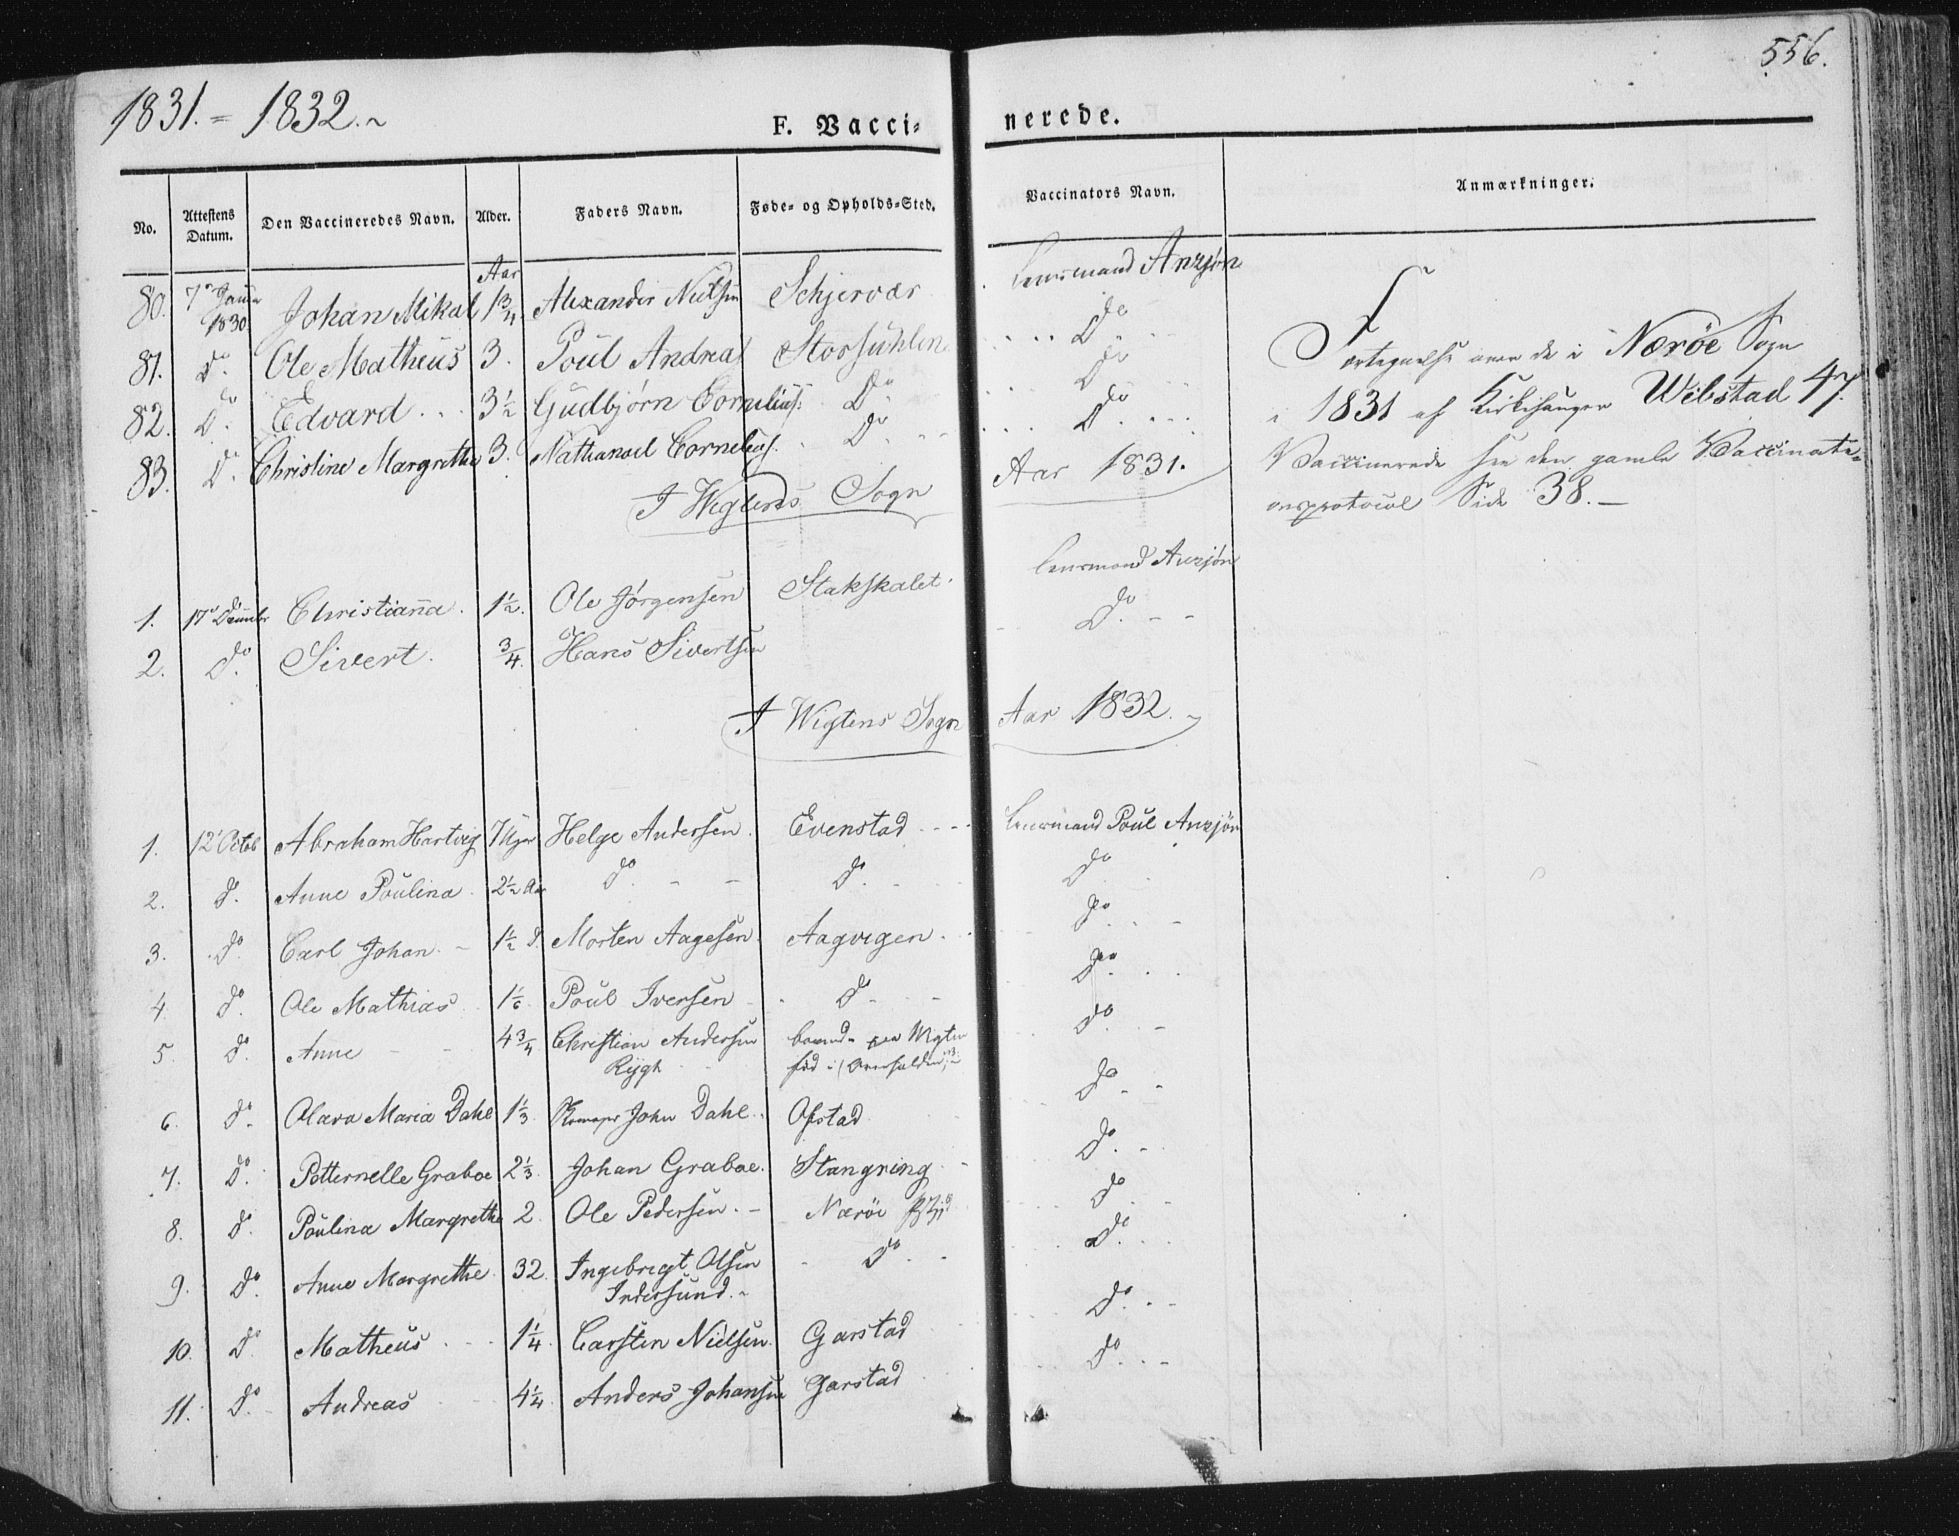 556.
1831. = 1832.
F. Vaccinerede.
No. Attestens Datum. Den Vaccineredes Navn. Alder. Faders Navn. Føde- og Opholds-Sted. Vaccinators Navn. Anmærkninger.
Aar
80. 7de Januar 1830 Johan Mikal 1 3/4 Alexander Nielsen Schjervær Lensmand Anzjøn
81. Do. Ole Matheus 3. Poul Andreas Storsuhlen Do
82. Do. Edvard 3 1/2 Gudbjørn Cornelius. Do. Do
83. Do Christine Margrethe 3. Nathanael Cornelius. Do. Do
Fortegnelse over de i Nærøe Sogn
i 1831 af Kirkesanger Wibstad 47.
Vaccinerede see den gamle Vaccinati-
onsprotocol Side 38.
I Wigtens Sogn Aar 1831.
1. 17de Decembr Christianna. 1 1/2. Ole Jørgensen Stakskalet Lensmand Anzjön
2. Do. Sivert. 3/4. Hans Sivertsen Do.
I Wigtens Sogn Aar 1832.
1. 12 Octob Abraham Hartvig 7 Uger Helge Andersen. Evenstad Lensmand Poul Anzjön
2. Do. Anne Poulina. 2 1/2 Aar Do. Do. Do
3. Do. Carl Johan. 1 1/2 D. Morten Aagesen. Aagvigen. Do.
4. Do. Ole Mathias 1 1/6 Poul Iversen Do Do.
5. Do. Anne 4 3/4 Christian Andersen Rygh boend paa Wigten fød i Overhalden Do.
6. Do. Olava Maria Dahl 1 1/3. John Dahl. Ofstad Do.
7. Do. Petternelle Graboe 2 1/3. Johan Graboe. Stangring Do.
8. Do. Poulina Margrethe 2. Ole Pedersen. Næröe Do.
9. Do. Anne Margrethe 32. Ingebrigt Olsen Indersund. Do. Do.
10. Do. Matheus 1 1/4. Carsten Nielsen. Garstad Do.
11. Do. Andreas 4 1/4. Anders Johansen Garstad Do.